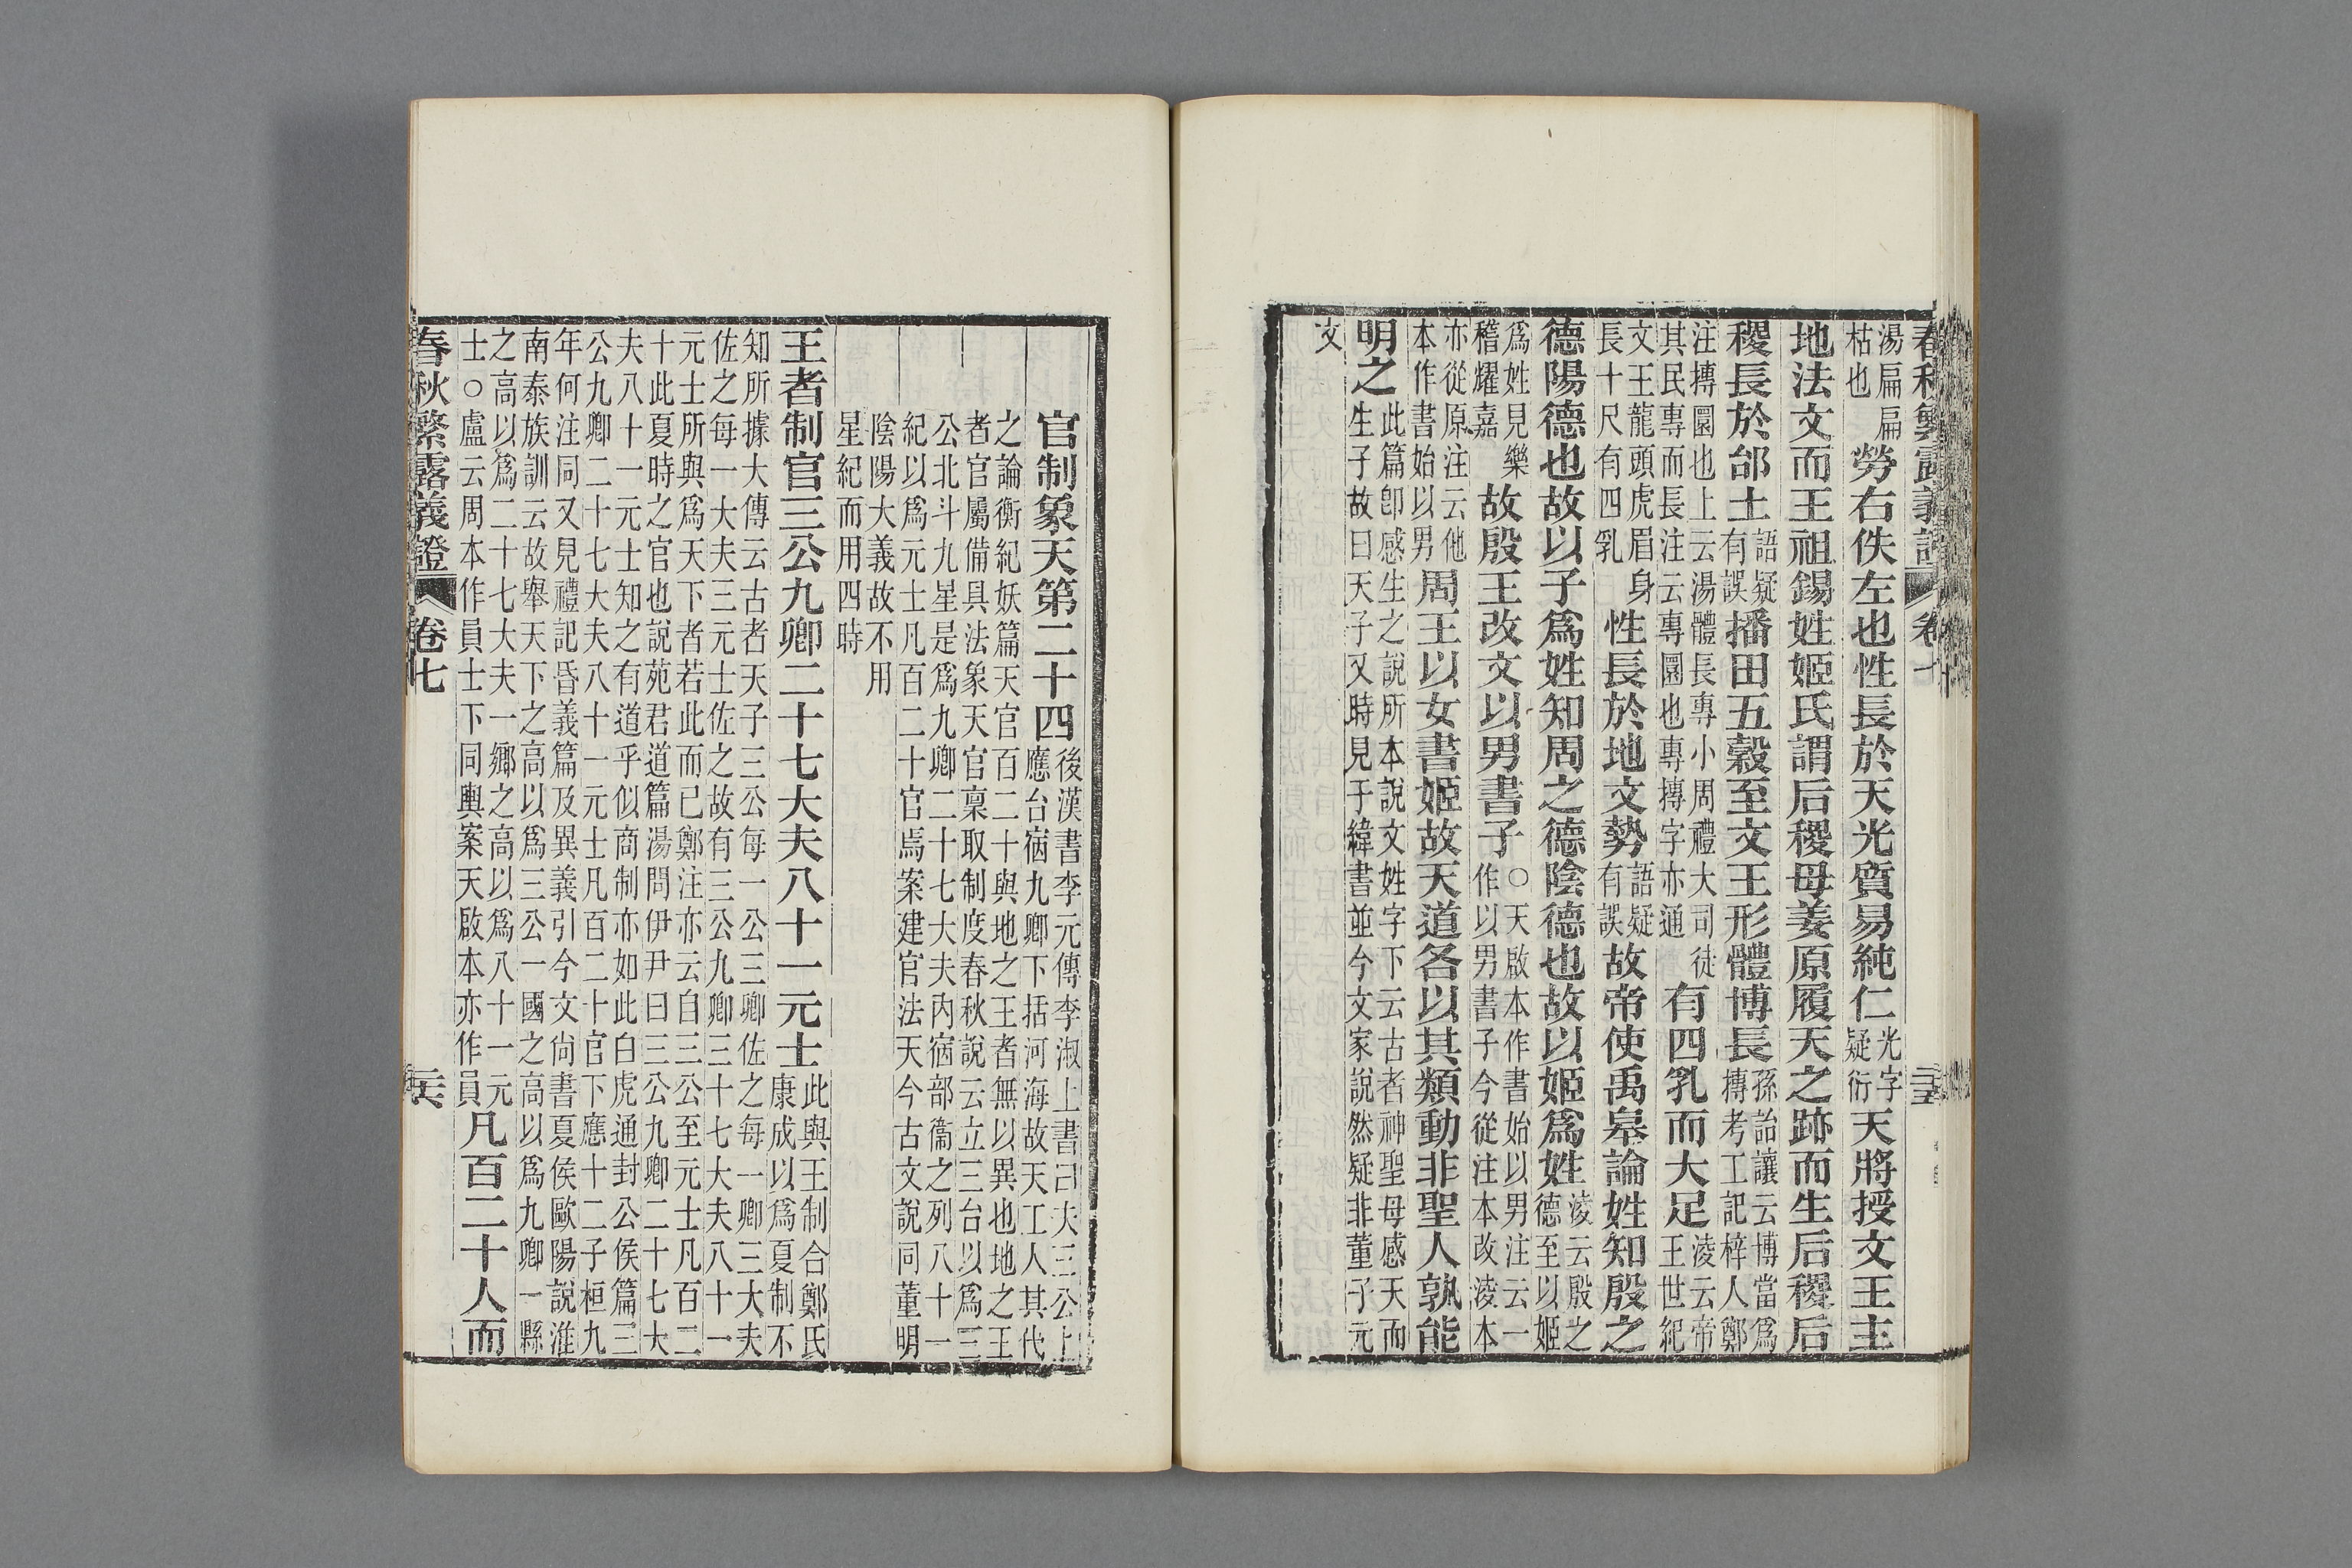 春秋繁露義證 卷七 二十五
湯扁扁
枯也
勞右佚左也性長於天光質易純仁
光字
疑衍
天將授文王主
地法文而王祖錫姓姬氏謂后稷母姜原履天之跡而生后稷后
稷長於邰土
語疑
有誤
播田五穀至文王形體博長
孫詒讓云博當爲
摶考工記梓人鄭
注摶圜也上云湯體長專小周禮大司徒
其民專而長注云專圜也專摶字亦通
有四乳而大足
淩云帝
王世紀
文王龍頭虎眉身
長十尺有四乳
性長於地文勢
語疑
有誤
故帝使禹皋論姓知殷之
德陽德也故以子爲姓知周之德陰德也故以姬爲姓
淩云殷之
德至以姬
爲姓見樂
稽燿嘉
故殷王改文以男書子
○天啟本作書始以男注云一
作以男書子今從注本改淩本
亦從原注云他
本作書始以男
周王以女書姬故天道各以其類動非聖人孰能
明之
此篇卽感生之說所本說文姓字下云古者神聖母感天而
生子故曰天子又時見于緯書並今文家說然疑非董子元
文
官制象天第二十四
後漢書李元傳李淑上書曰夫三公上
應台宿九卿下括河海故天工人其代
之論衡紀妖篇天官百二十與地之王者無以異也地之王
者官屬備具法象天官稟取制度春秋說云立三台以爲三
公北斗九星是爲九卿二十七大夫內宿部衞之列八十一
紀以爲元士凡百二十官焉案建官法天今古文說同董明
陰陽大義故不用
星紀而用四時
王者制官三公九卿二十七大夫八十一元士
此與王制合鄭氏
康成以爲夏制不
知所據大傳云古者天子三公每一公三卿佐之每一卿三大夫
佐之每一大夫三元士佐之故有三公九卿三十七大夫八十一
元士所與爲天下者若此而已鄭注亦云自三公至元士凡百二
十此夏時之官也說苑君道篇湯問伊尹曰三公九卿二十七大
夫八十一元士知之有道乎似商制亦如此白虎通封公侯篇三
公九卿二十七大夫八十一元士凡百二十官下應十二子桓九
年何注同又見禮記昏義篇及異義引今文尙書夏侯歐陽說淮
南泰族訓云故舉天下之高以爲三公一國之高以爲九卿一縣
之高以爲二十七大夫一鄉之高以爲八十一元
士○盧云周本作員士下同輿案天啟本亦作員
凡百二十人而
春秋繁露義證 卷七 二十六